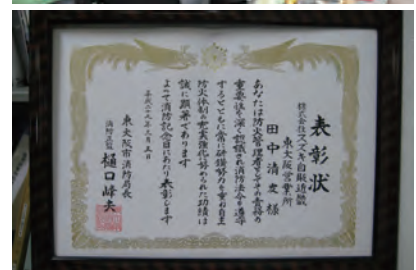 表彰状
株式会社スズキ自販近畿
東大阪営業所
田中清文様
あなたは防火管理者としてその責務の
重要性を深く認識され消防法令を遵守
するとともに常に研鑽努力を重ね自主
防火体制の充実強化に努められた功績は
誠に顕著であります
よって消防記念日にあたり表彰します
平成二十九年三月五日
東大阪市消防局長
消防正監 樋口峰夫